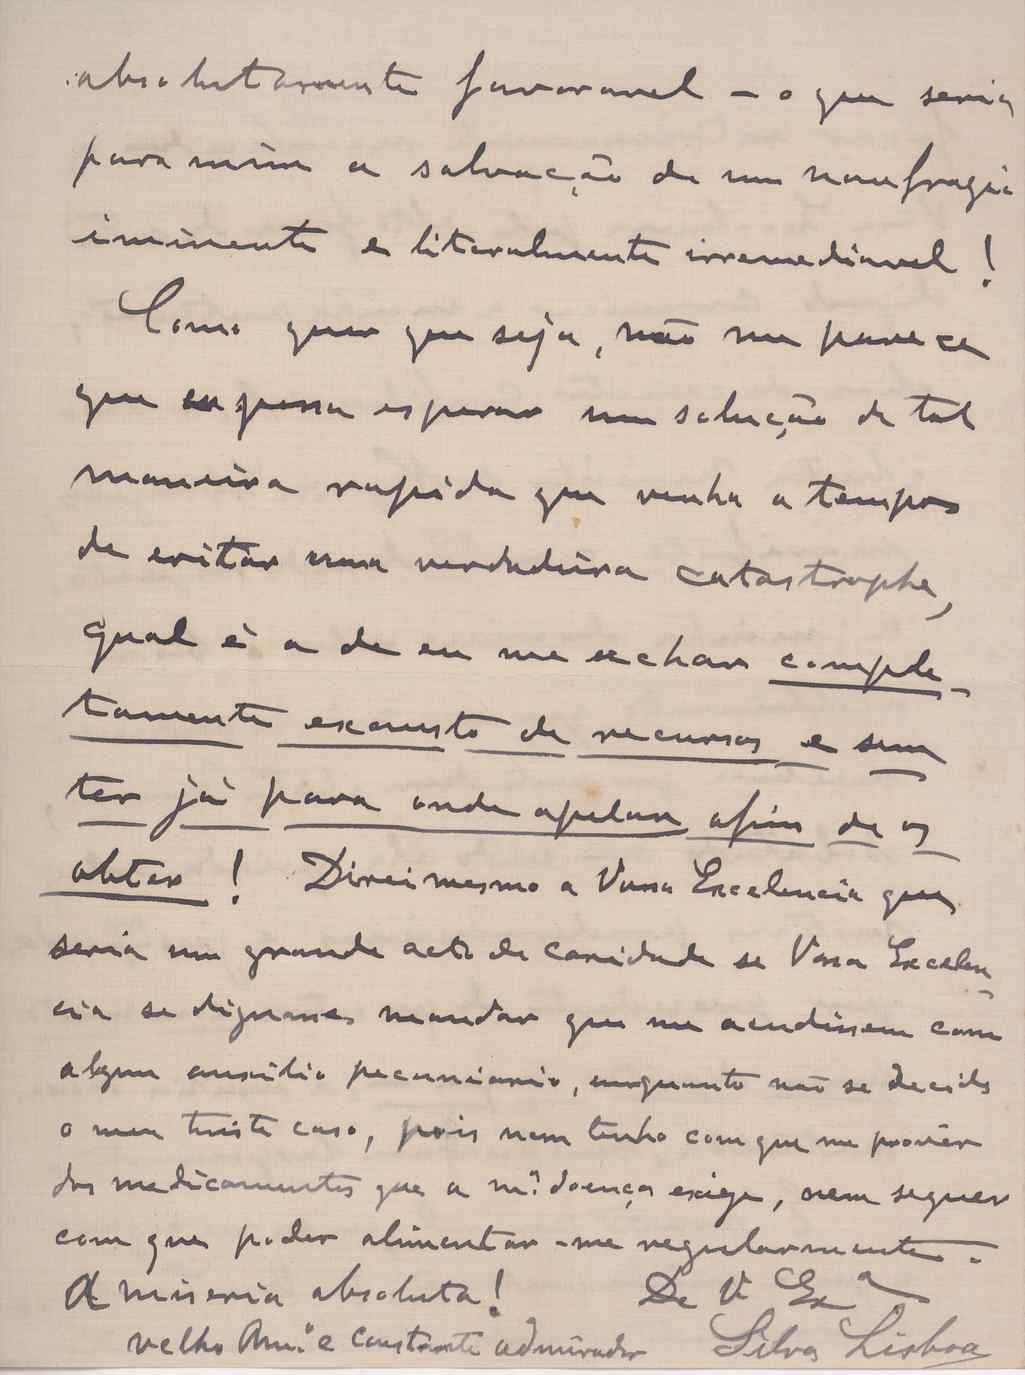 absolutamente favoravel - o que seria
para mim a salvação de um naufragio
iminente e literalmente irremediavel!
Como quer que seja, não me parece
que eu possa esperar uma solução de tal
maneira rapida que venha a tempo
de evitar uma verdadeira catastrophe,
qual é a de eu me achar comple-
tamente exausto de recursos e sem
ter já para onde apelar afim de os
obter! Direi mesmo a Vossa Excelencia que
seria um grande acto de caridade se Vossa Excelen-
cia se dignasse mandar que me acudissem com
algum auxilio pecuniario, enquanto não se decide
o meu triste caso, pois nem tenho com que me prover
dos medicamentos que a m.ª doença exige, nem sequer
com que poder alimentar-me regularmente.
A miseria absoluta! De V. Ex.ª
velho Am.º e constante admirador Silva Lisboa